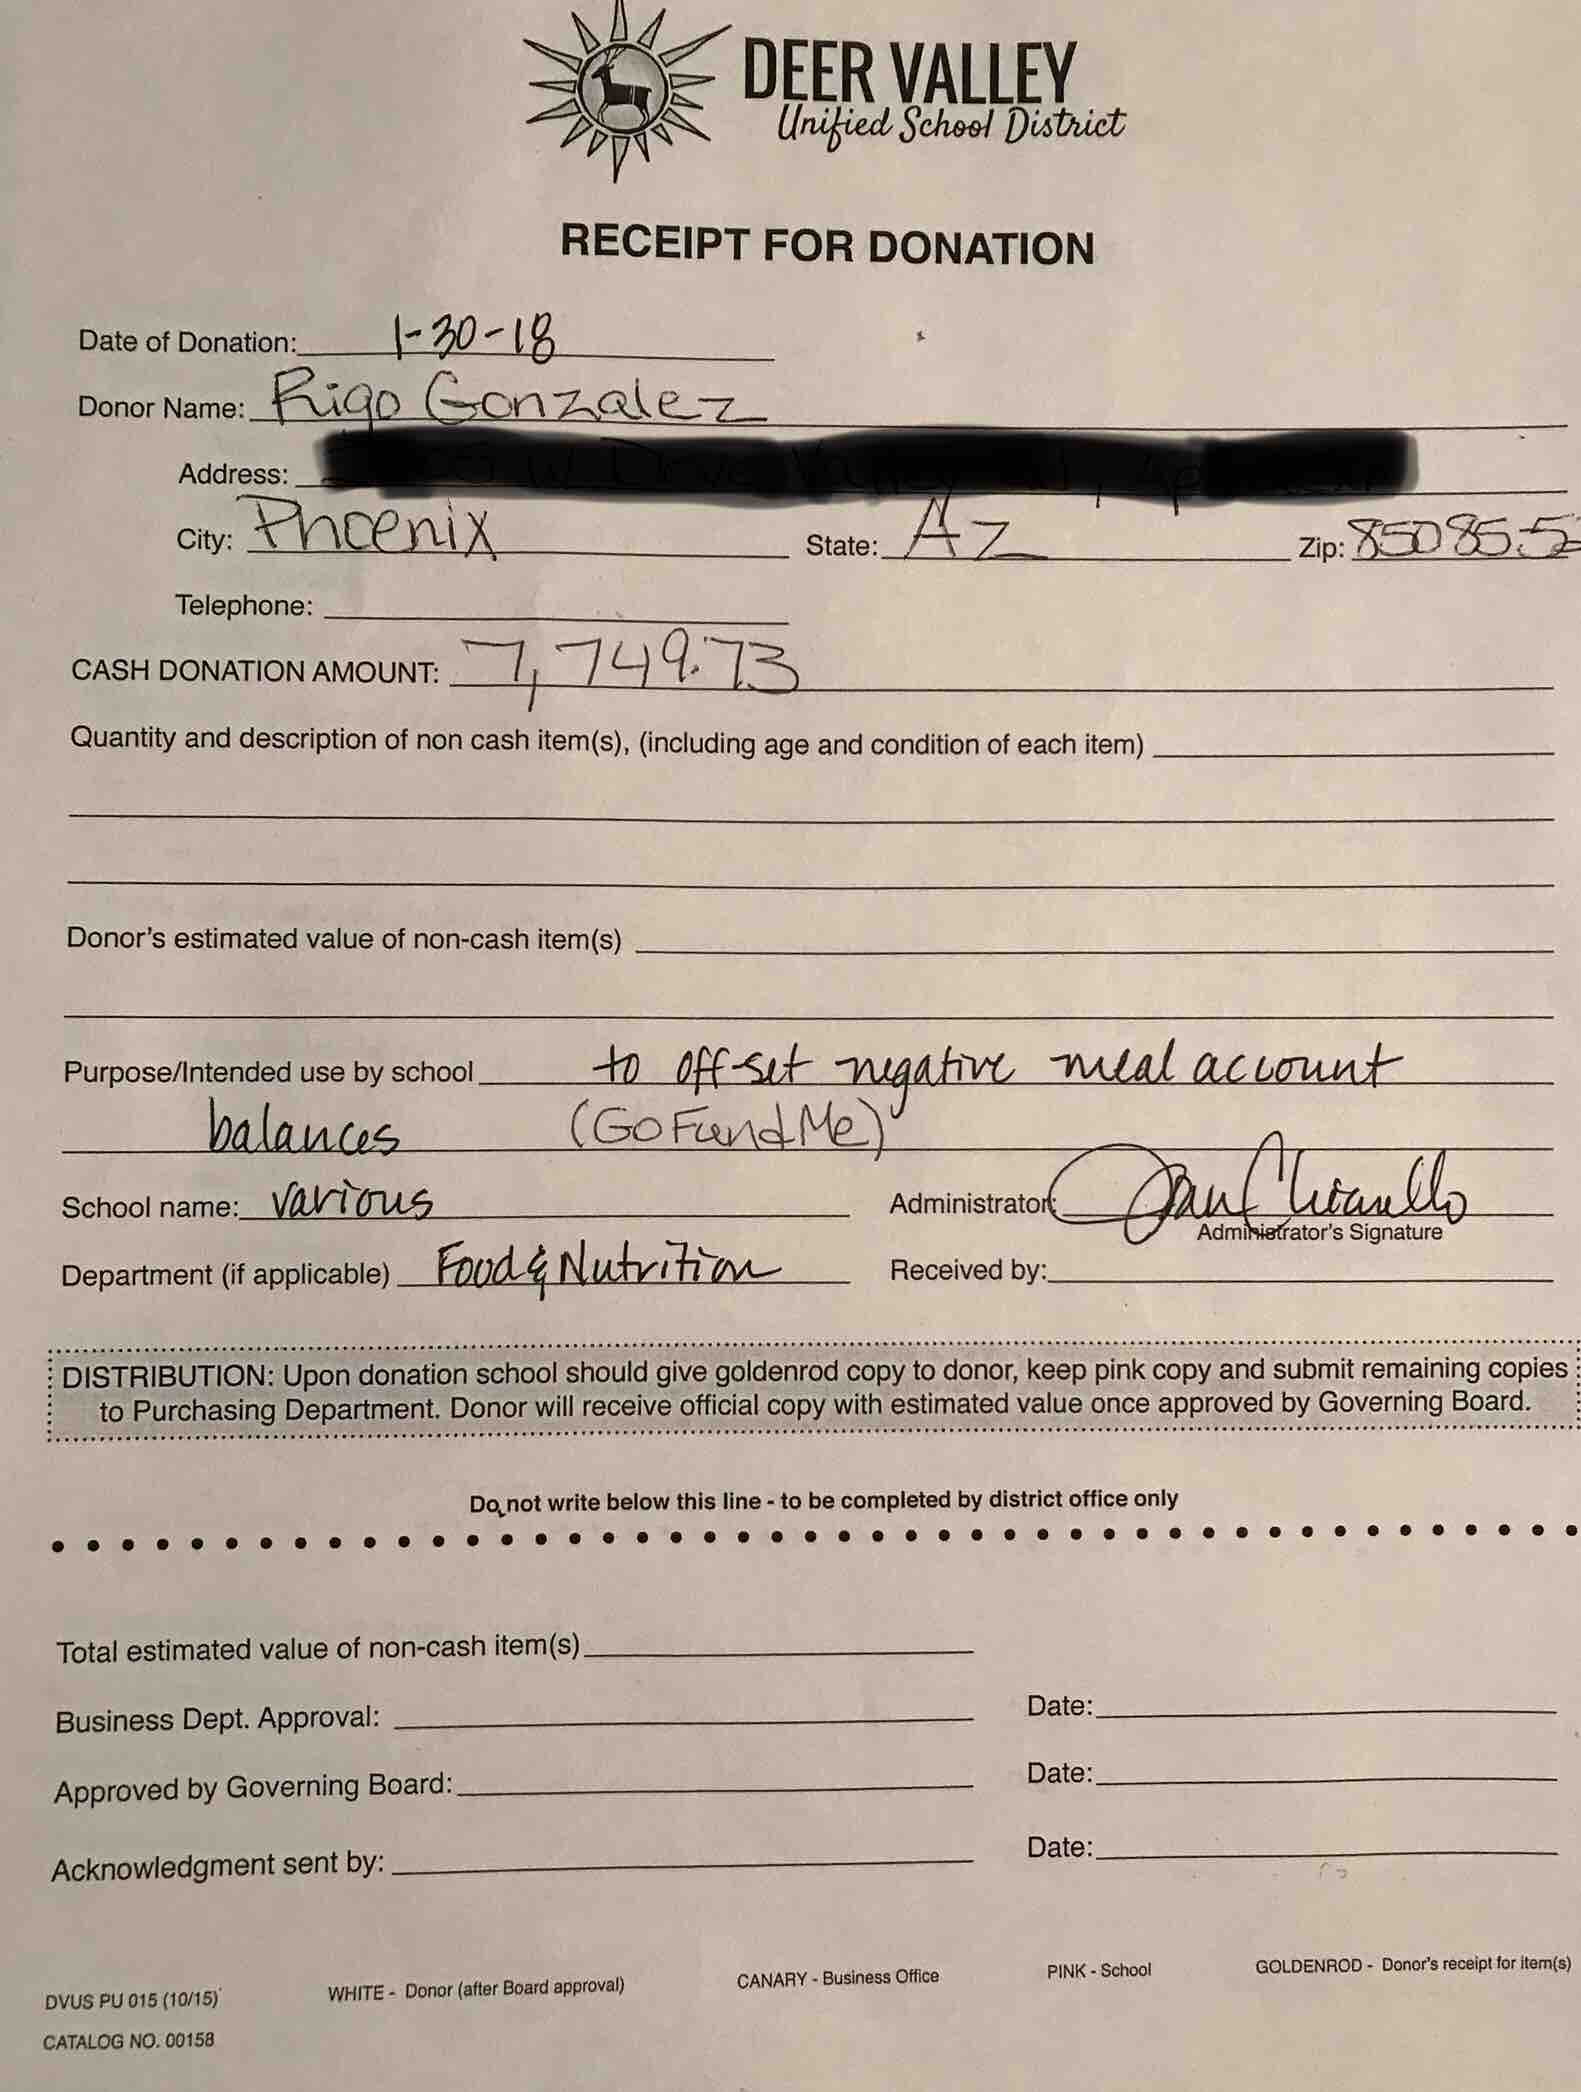 DEER VALLEY
Unified School District
RECEIPT FOR DONATION
Date of Donation: 1-30-18
Donor Name: Rigo Gonzalez
Address:
City: Phoenix State: Az Zip: 85085.5
Telephone:
CASH DONATION AMOUNT: 7,749.73
Quantity and description of non cash item(s), (including age and condition of each item)
Donor's estimated value of non-cash item(s)
Purpose/Intended use by school to off-set negative meal account
balances (GoFundMe)
School name: various Administrator: Jan Chiarello
Administrator's Signature
Department (if applicable) Food & Nutrition Received by:
DISTRIBUTION: Upon donation school should give goldenrod copy to donor, keep pink copy and submit remaining copies
to Purchasing Department. Donor will receive official copy with estimated value once approved by Governing Board.
Do not write below this line - to be completed by district office only
Total estimated value of non-cash item(s)
Business Dept. Approval: Date:
Approved by Governing Board: Date:
Acknowledgment sent by: Date:
DVUS PU 015 (10/15) WHITE - Donor (after Board approval) CANARY - Business Office PINK - School GOLDENROD - Donor's receipt for item(s)
CATALOG NO. 00158